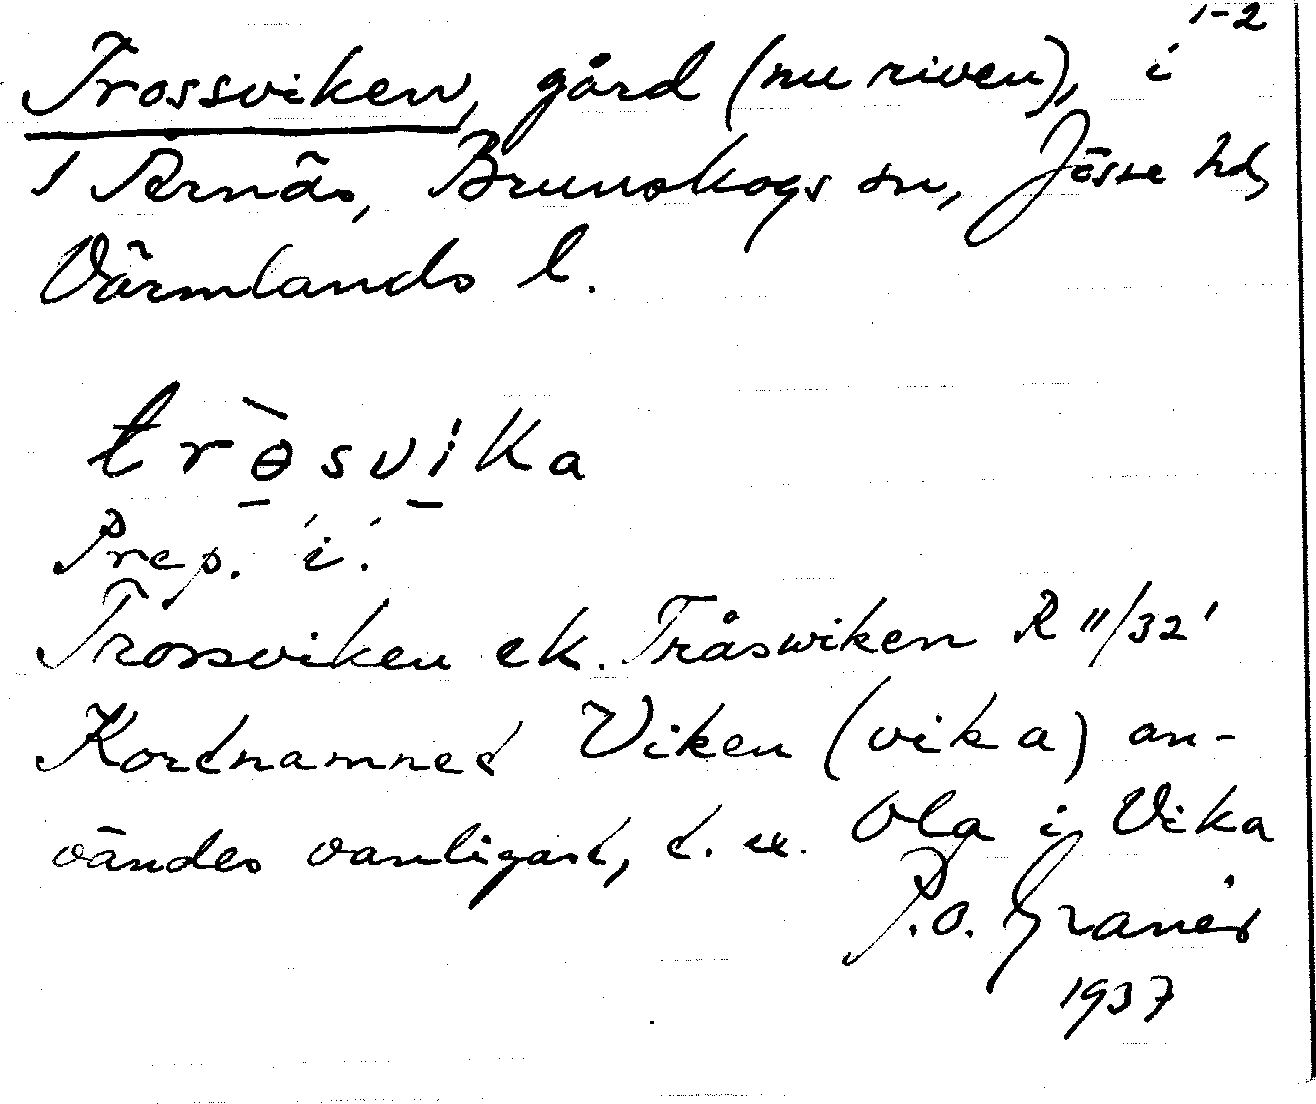 1-2
Trossviken, gård (nu riven), i
1 Ärnäs, Brunskogs sn, Jösse hd,
Värmlands l.
trɵ̀svika
Prep. 'i'.
Trossviken ek. Tråswiken R 11/32'
Kortnamnet Viken (vika) an-
vändes vanligast, t. ex. Ola i Vika
P.O. Granér
1937